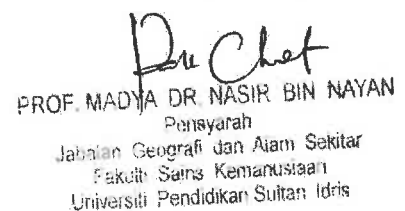 PROF. MADYA DR. NASIR BIN NAYAN
Pensyarah
Jabatan Geografi dan Alam Sekitar
Fakulti Sains Kemanusiaan
Universiti Pendidikan Sultan Idris